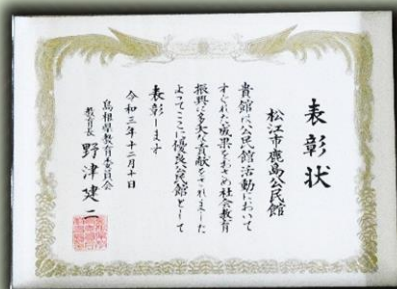 表彰状
松江市鹿島公民館
貴館は公民館活動において
すぐれた成果をおさめ社会教育
振興に多大な貢献をされました
よってここに優良公民館として
表彰します
令和三年十二月十日
島根県教育委員会
教育長 野津建二